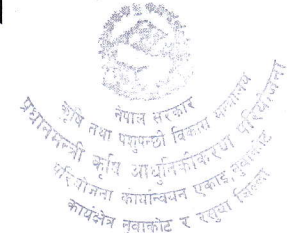 नेपाल सरकार
कृषि तथा पशुपन्छी विकास मन्त्रालय
प्रधानमन्त्री कृषि आधुनिकीकरण परियोजना
परियोजना कार्यान्वयन एकाइ नुवाकोट
कार्यक्षेत्र नुवाकोट र रसुवा जिल्ला